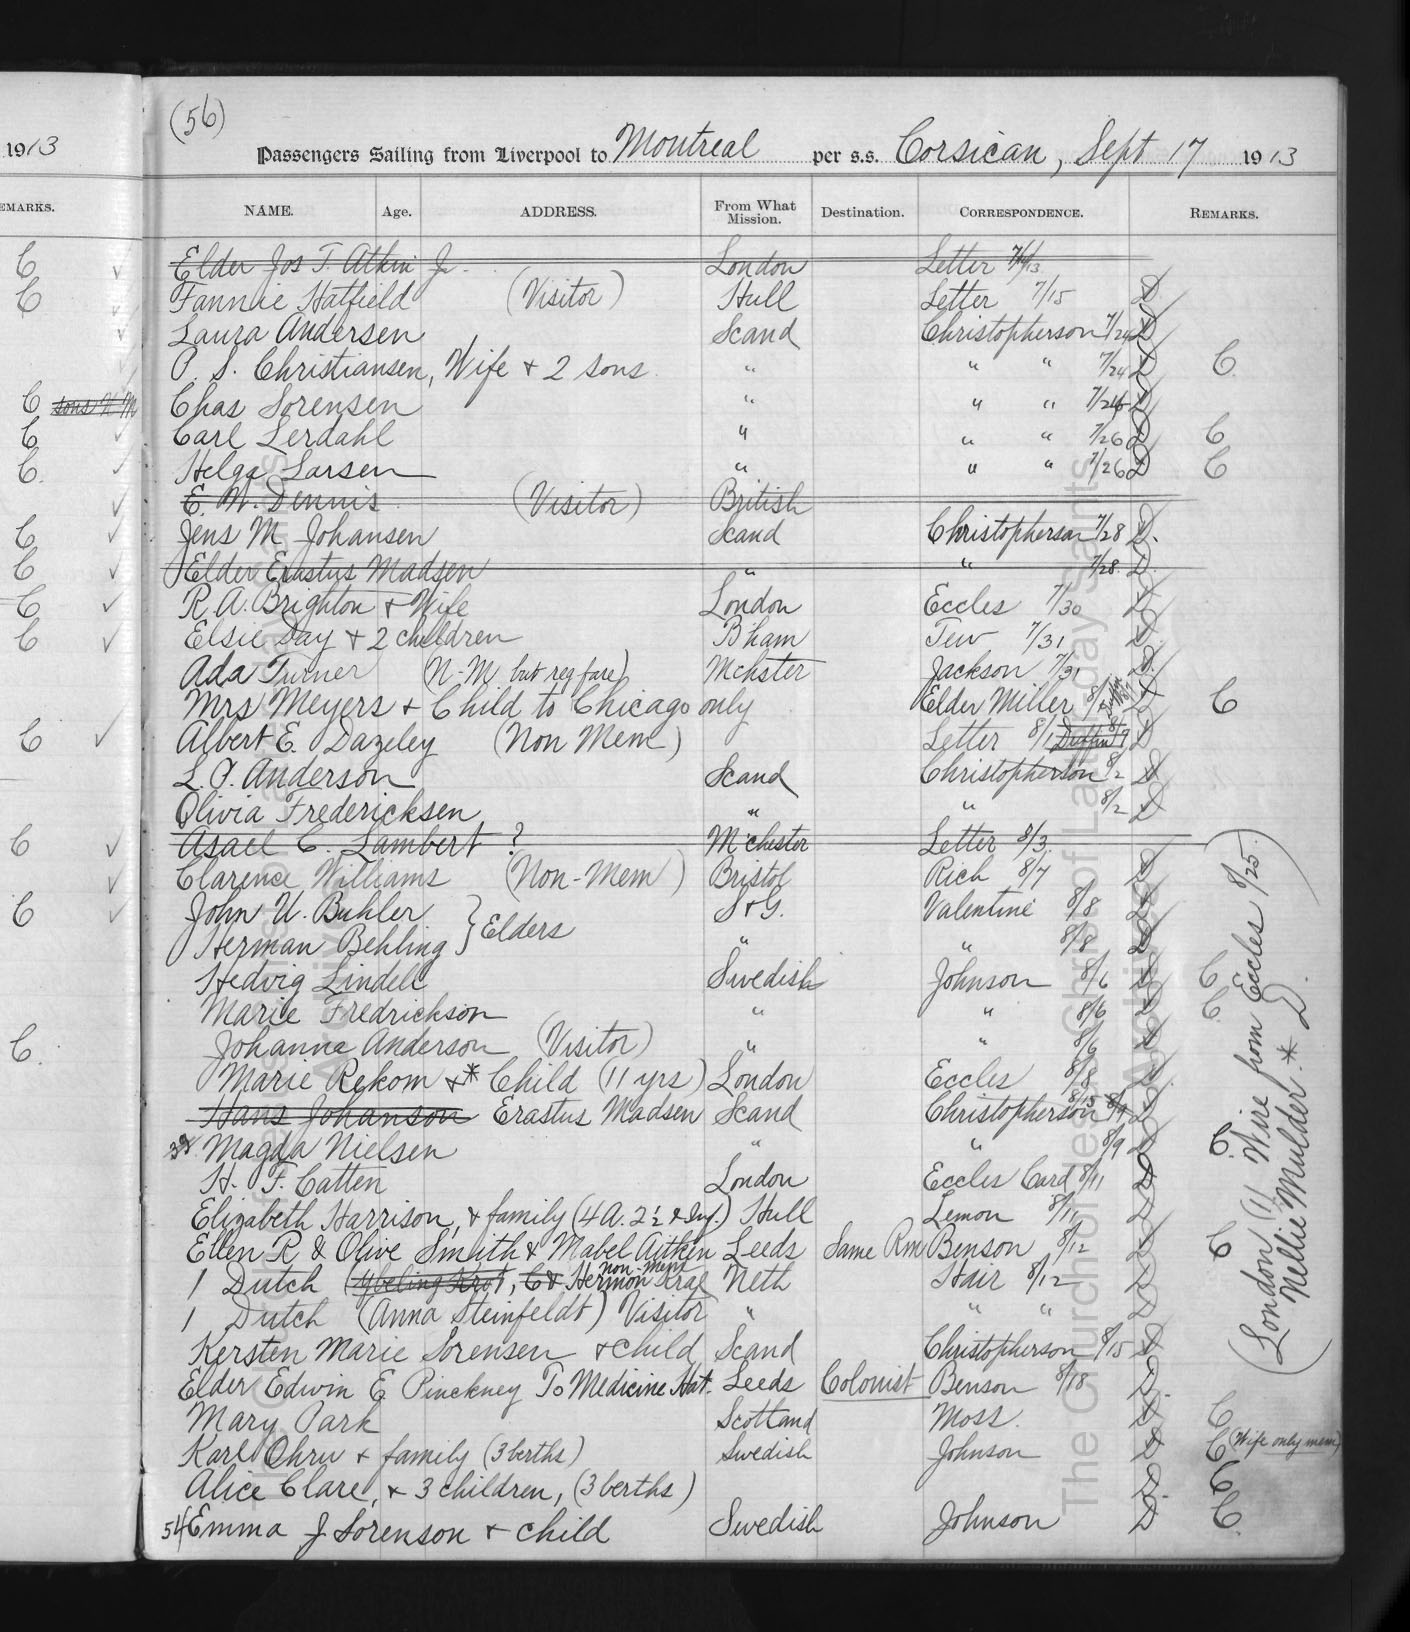 (56)
1913
Passengers Sailing from Liverpool to Montreal per s.s. Corsican, Sept 17 1913
EMARKS.
NAME. Age. ADDRESS. From What Mission. Destination. CORRESPONDENCE. REMARKS.
C Elder Jos T. Atkin Jr. London Letter
C Fannie Hatfield (Visitor) Hull Letter 7/15 D
Laura Andersen Scand Christopherson 7/24 D
P. S. Christiansen, Wife + 2 sons " " " 7/24 D C
C Chas Sorensen " " " 7/26 D
C Carl Lerdahl " " " 7/26 D C
C. Helga Larsen " " " 7/26 D C
E. W. Dennis (Visitor) British
C Jens M Johansen Scand Christopherson 7/28 D.
C Elder Erastus Madsen " " 7/28 D.
C R. A. Brighton + Wife London Eccles 7/30 D
C Elsie Day + 2 children B'ham Tew 7/31 D.
Ada Turner (N-M but reg fare) Mchster Jackson 7/31 D.
Mrs Meyers + Child to Chicago only Elder Miller D C
C Albert E. Dazeley (Non Mem) Letter 8/1 D
L. P. Anderson Scand Christopherson 8/2 D
Olivia Fredericksen " " 8/2 D
C Asael C. Lambert ? M'chester Letter 8/3.
Clarence Williams (Non-Mem) Bristol Rich 8/7 D
C John U. Buhler } Elders S + G. Valentine 8/8 D
Herman Behling " " 8/8 D
Hedvig Lindell Swedish Johnson 8/6 D C
Marie Fredrickson " " 8/6 D C
C. Johanna Anderson (Visitor) " " 8/6 D
Marie Rekom +* Child (11 yrs) London Eccles 8/8 D
Hans Johanson Erastus Madsen Scand Christopherson 8/15 D
38 Magda Nielsen " " 8/9 D C.
H. F. Catten London Eccles Card 8/11 D
Elizabeth Harrison, + family (4 A. 2 ½ + Inf.) Hull Lemon 8/11 D
Ellen R & Olive Smith + Mabel Aitken Leeds Same Rm Benson 8/12 D C
non-mem
1 Dutch Hermon Kral Neth Hair 8/12 D
1 Dutch (Anna Steinfeldt) Visitor " " " D
Kersten Marie Sorensen + child Scand Christopherson 8/15 D
Elder Edwin E Pinckney To Medicine Hat. Leeds Colonist Benson 8/18 D.
Mary Park Scotland Moss. D C
Karl Ohru + family (3 berths) Swedish Johnson D C (Wife only mem)
Alice Clare, + 3 children, (3 berths) D C
54 Emma J Sorenson + child Swedish Johnson D C.
(London (1) Wire from Eccles 8/25.)
Nellie Mulder * D.
The Church of Jesus Christ of Latter-day Saints
Archives